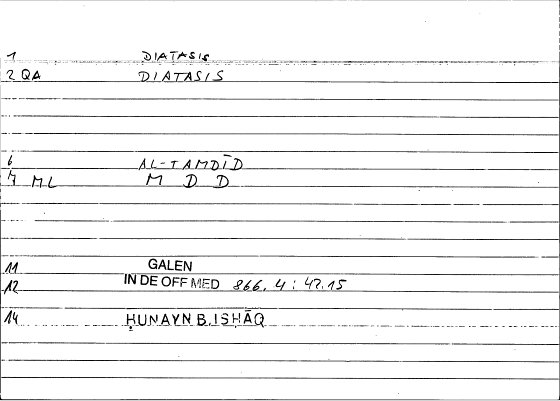 1 DIATASIS
2 QA DIATASIS
6 AL-TAMDĪD
7 ML M D D
11 GALEN
12 IN DE OFF MED 866, 4 : 47.15
14 ḤUNAYN B. ISḤĀQ